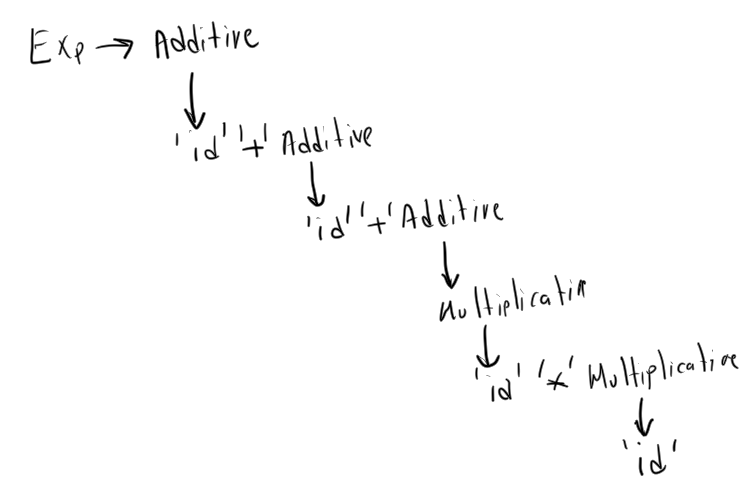 Exp → Additive
'id' '+' Additive
'id' '+' Additive
Multiplicativ
'id' '*' Multiplicative
'id'